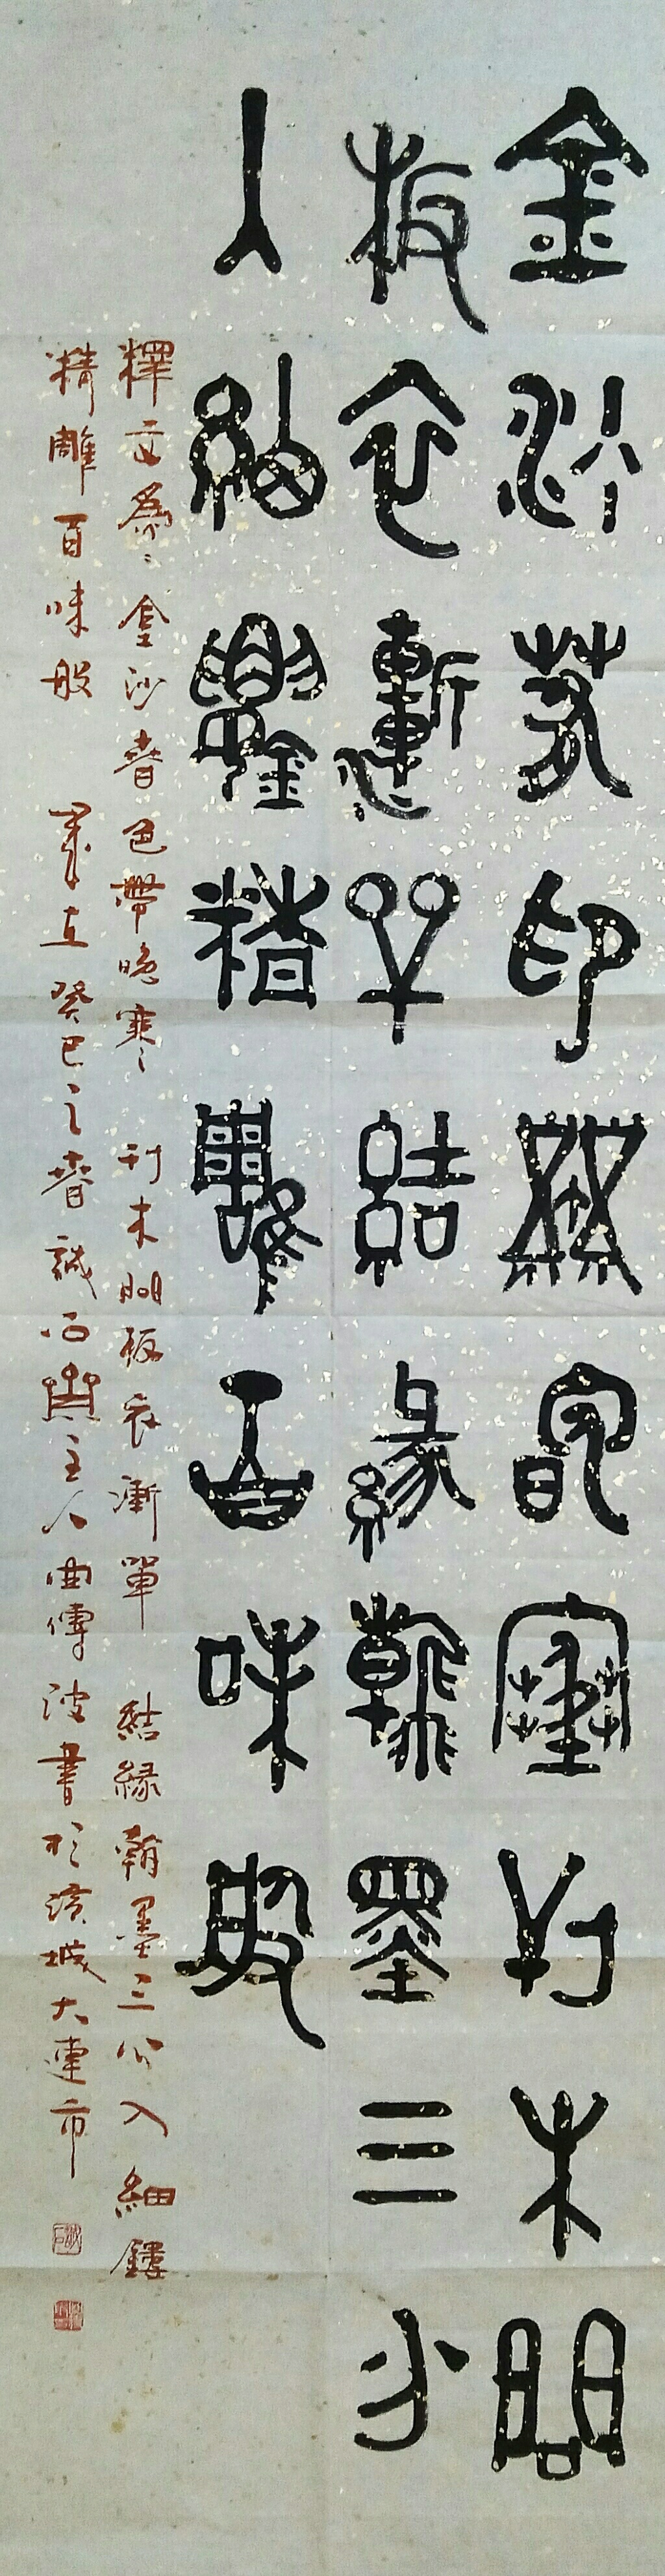 金沙春色帶晚寒刊木問
板衣漸單結緣翰墨三分
入細鏤精雕百味般
釋文為金沙春色帶晚寒 刊木問板衣漸單 結緣翰墨三分入細鏤
精雕百味般 歲在癸巳之春誠石齋主人曲傳波書於濱城大連市